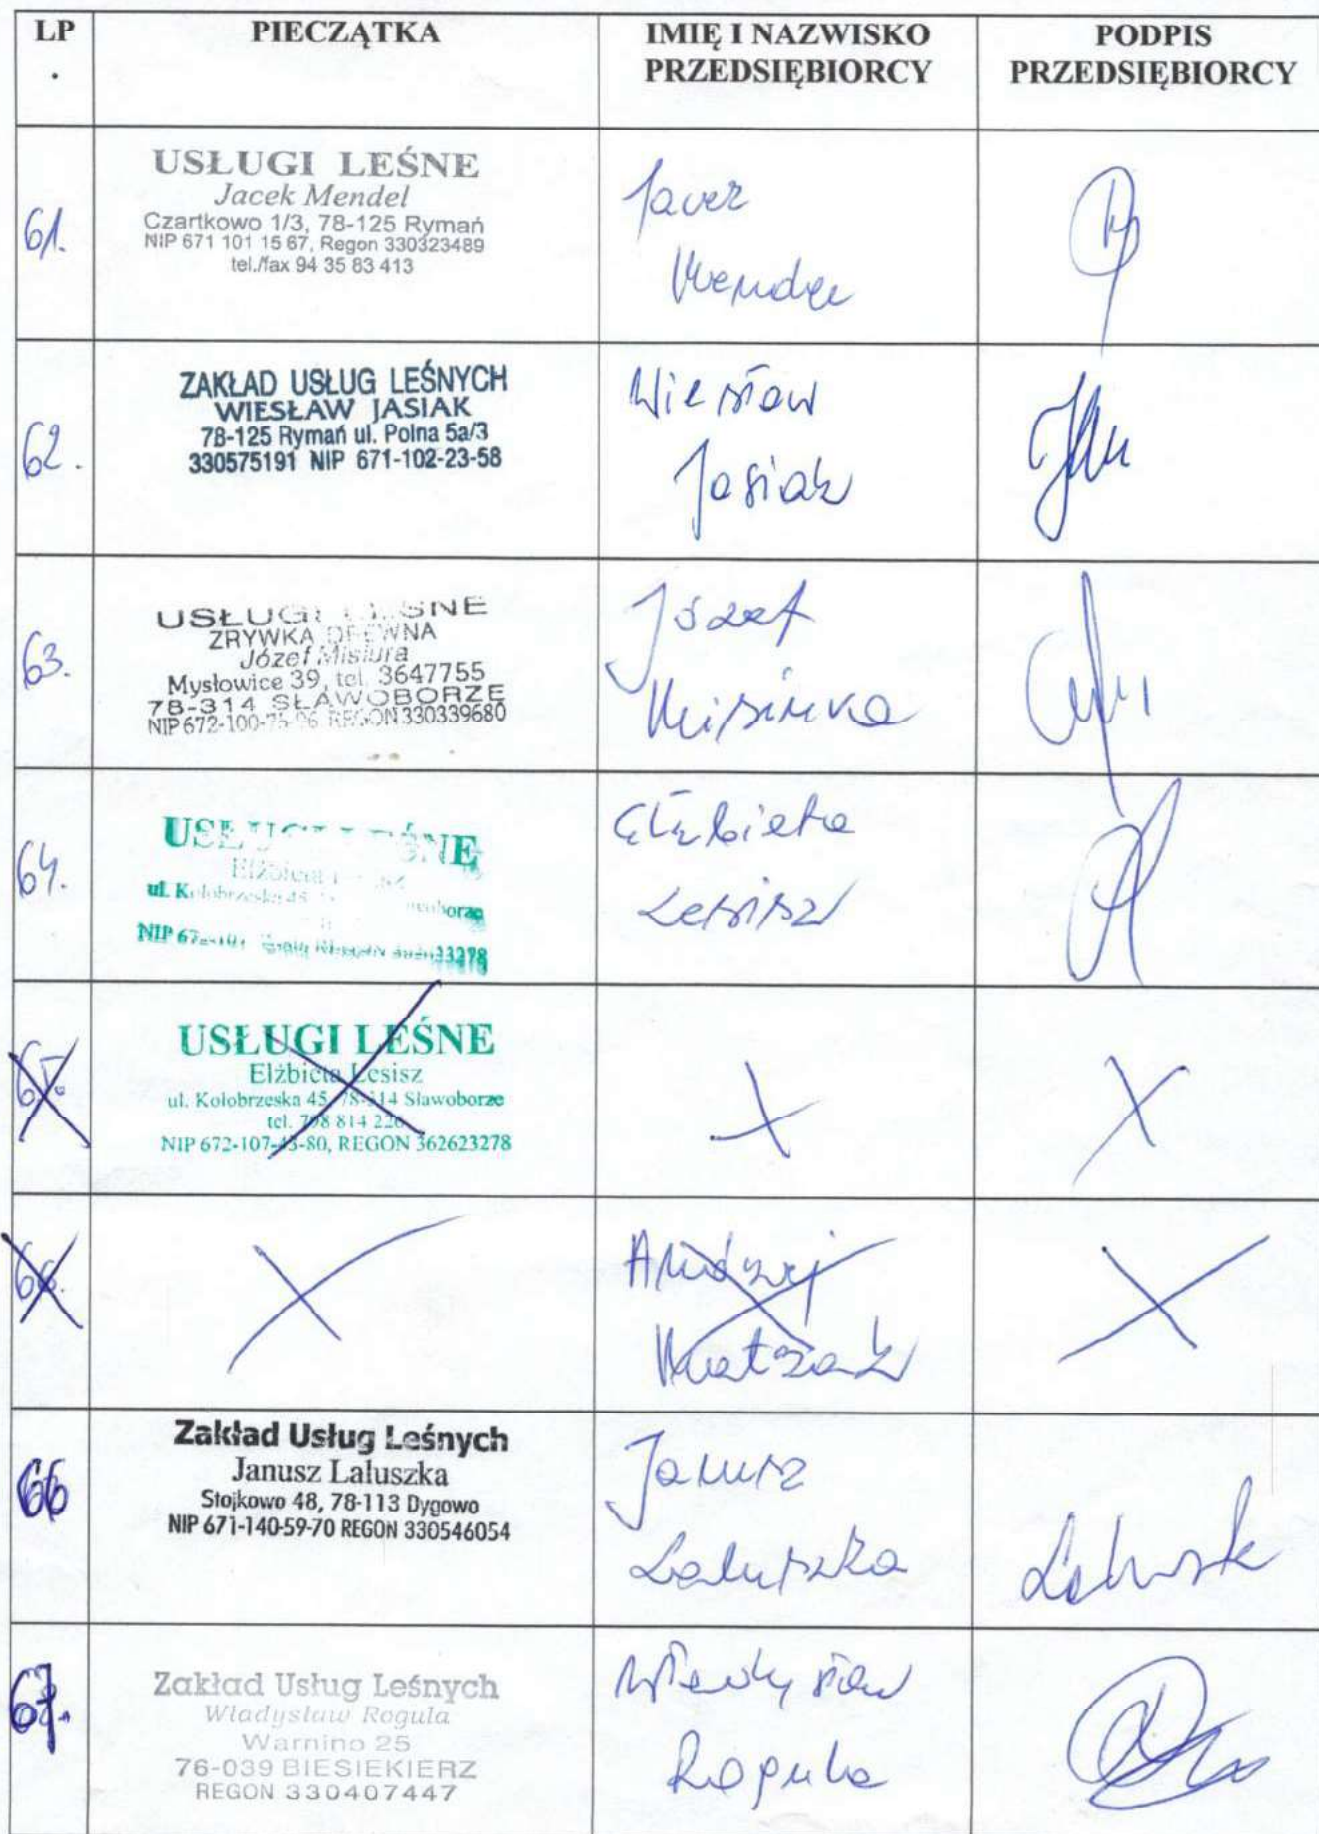 LP.
PIECZĄTKA
IMIĘ I NAZWISKO
PRZEDSIĘBIORCY
PODPIS
PRZEDSIĘBIORCY
61.
USŁUGI LEŚNE
Jacek Mendel
Czartkowo 1/3, 78-125 Rymań
NIP 671 101 15 67, Regon 330323489
tel./fax 94 35 83 413
Jacek
Mendel
62.
ZAKŁAD USŁUG LEŚNYCH
WIESŁAW JASIAK
78-125 Rymań ul. Polna 5a/3
330575191 NIP 671-102-23-58
Wiesław
Jasiak
63.
USŁUGI LEŚNE
ZRYWKA DREWNA
Józef Misiura
Mysłowice 39, tel. 3647755
78-314 SŁAWOBORZE
NIP 672-100-75-96 REGON 330339680
Józef
Misiura
64.
USŁUGI LEŚNE
Elżbieta
ul. Kołobrzeska 45
NIP 672-107
Elżbieta
Lesisz
65.
USŁUGI LEŚNE
Elżbieta Lesisz
ul. Kołobrzeska 45, 78-314 Sławoborze
tel. 798 814 226
NIP 672-107-43-80, REGON 362623278
66.
Andrzej
66
Zakład Usług Leśnych
Janusz Laluszka
Stojkowo 48, 78-113 Dygowo
NIP 671-140-59-70 REGON 330546054
Janusz
Laluszka
67.
Zakład Usług Leśnych
Władysław Rogula
Warnino 25
76-039 BIESIEKIERZ
REGON 330407447
Władysław
Rogula